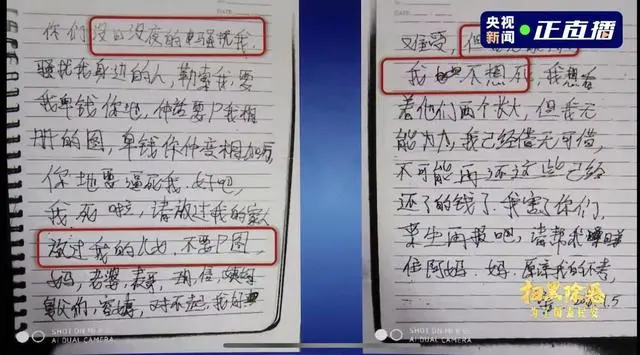 央视新闻 正直播
你们没日没夜的骚扰我,
骚扰我身边的人,勒索我,要
我卑钱你地,仲话要P我相
册的图,卑钱你仲变相加
你地要逼死我,好吧,
我死啦,请放过我的家人
放过我的父女,不要P图,
妈,老婆,表哥,
舅父们,对不起,我好
SHOT ON MI 8
AI DUAL CAMERA
DATE
难受,但
我不想死,我想看
着他们两个长大,但我无
能为力,我已经借无可借,
不可能再还这些已经
还了的钱了.我害了你们,
来生再报吧,请帮我
住阿妈.妈,原谅我的不孝
1.5
扫黑除恶
为中国老百姓
SHOT ON MI
AI DUAL CAMERA